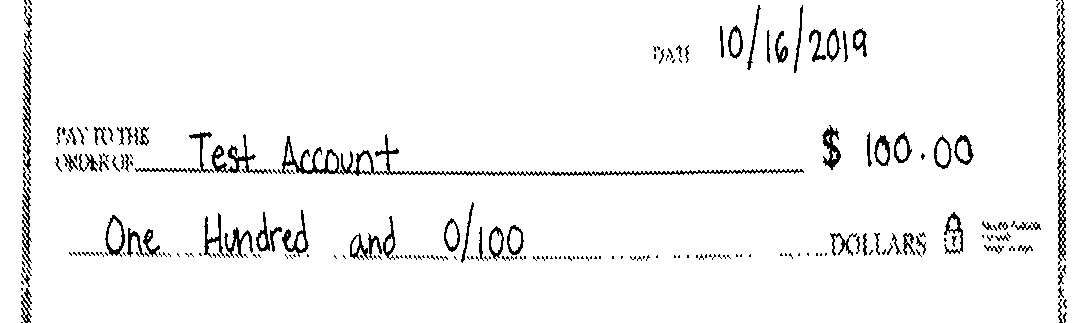 DATE 10/16/2019
PAY TO THE
ORDER OF Test Account $ 100.00
One Hundred and 0/100 DOLLARS